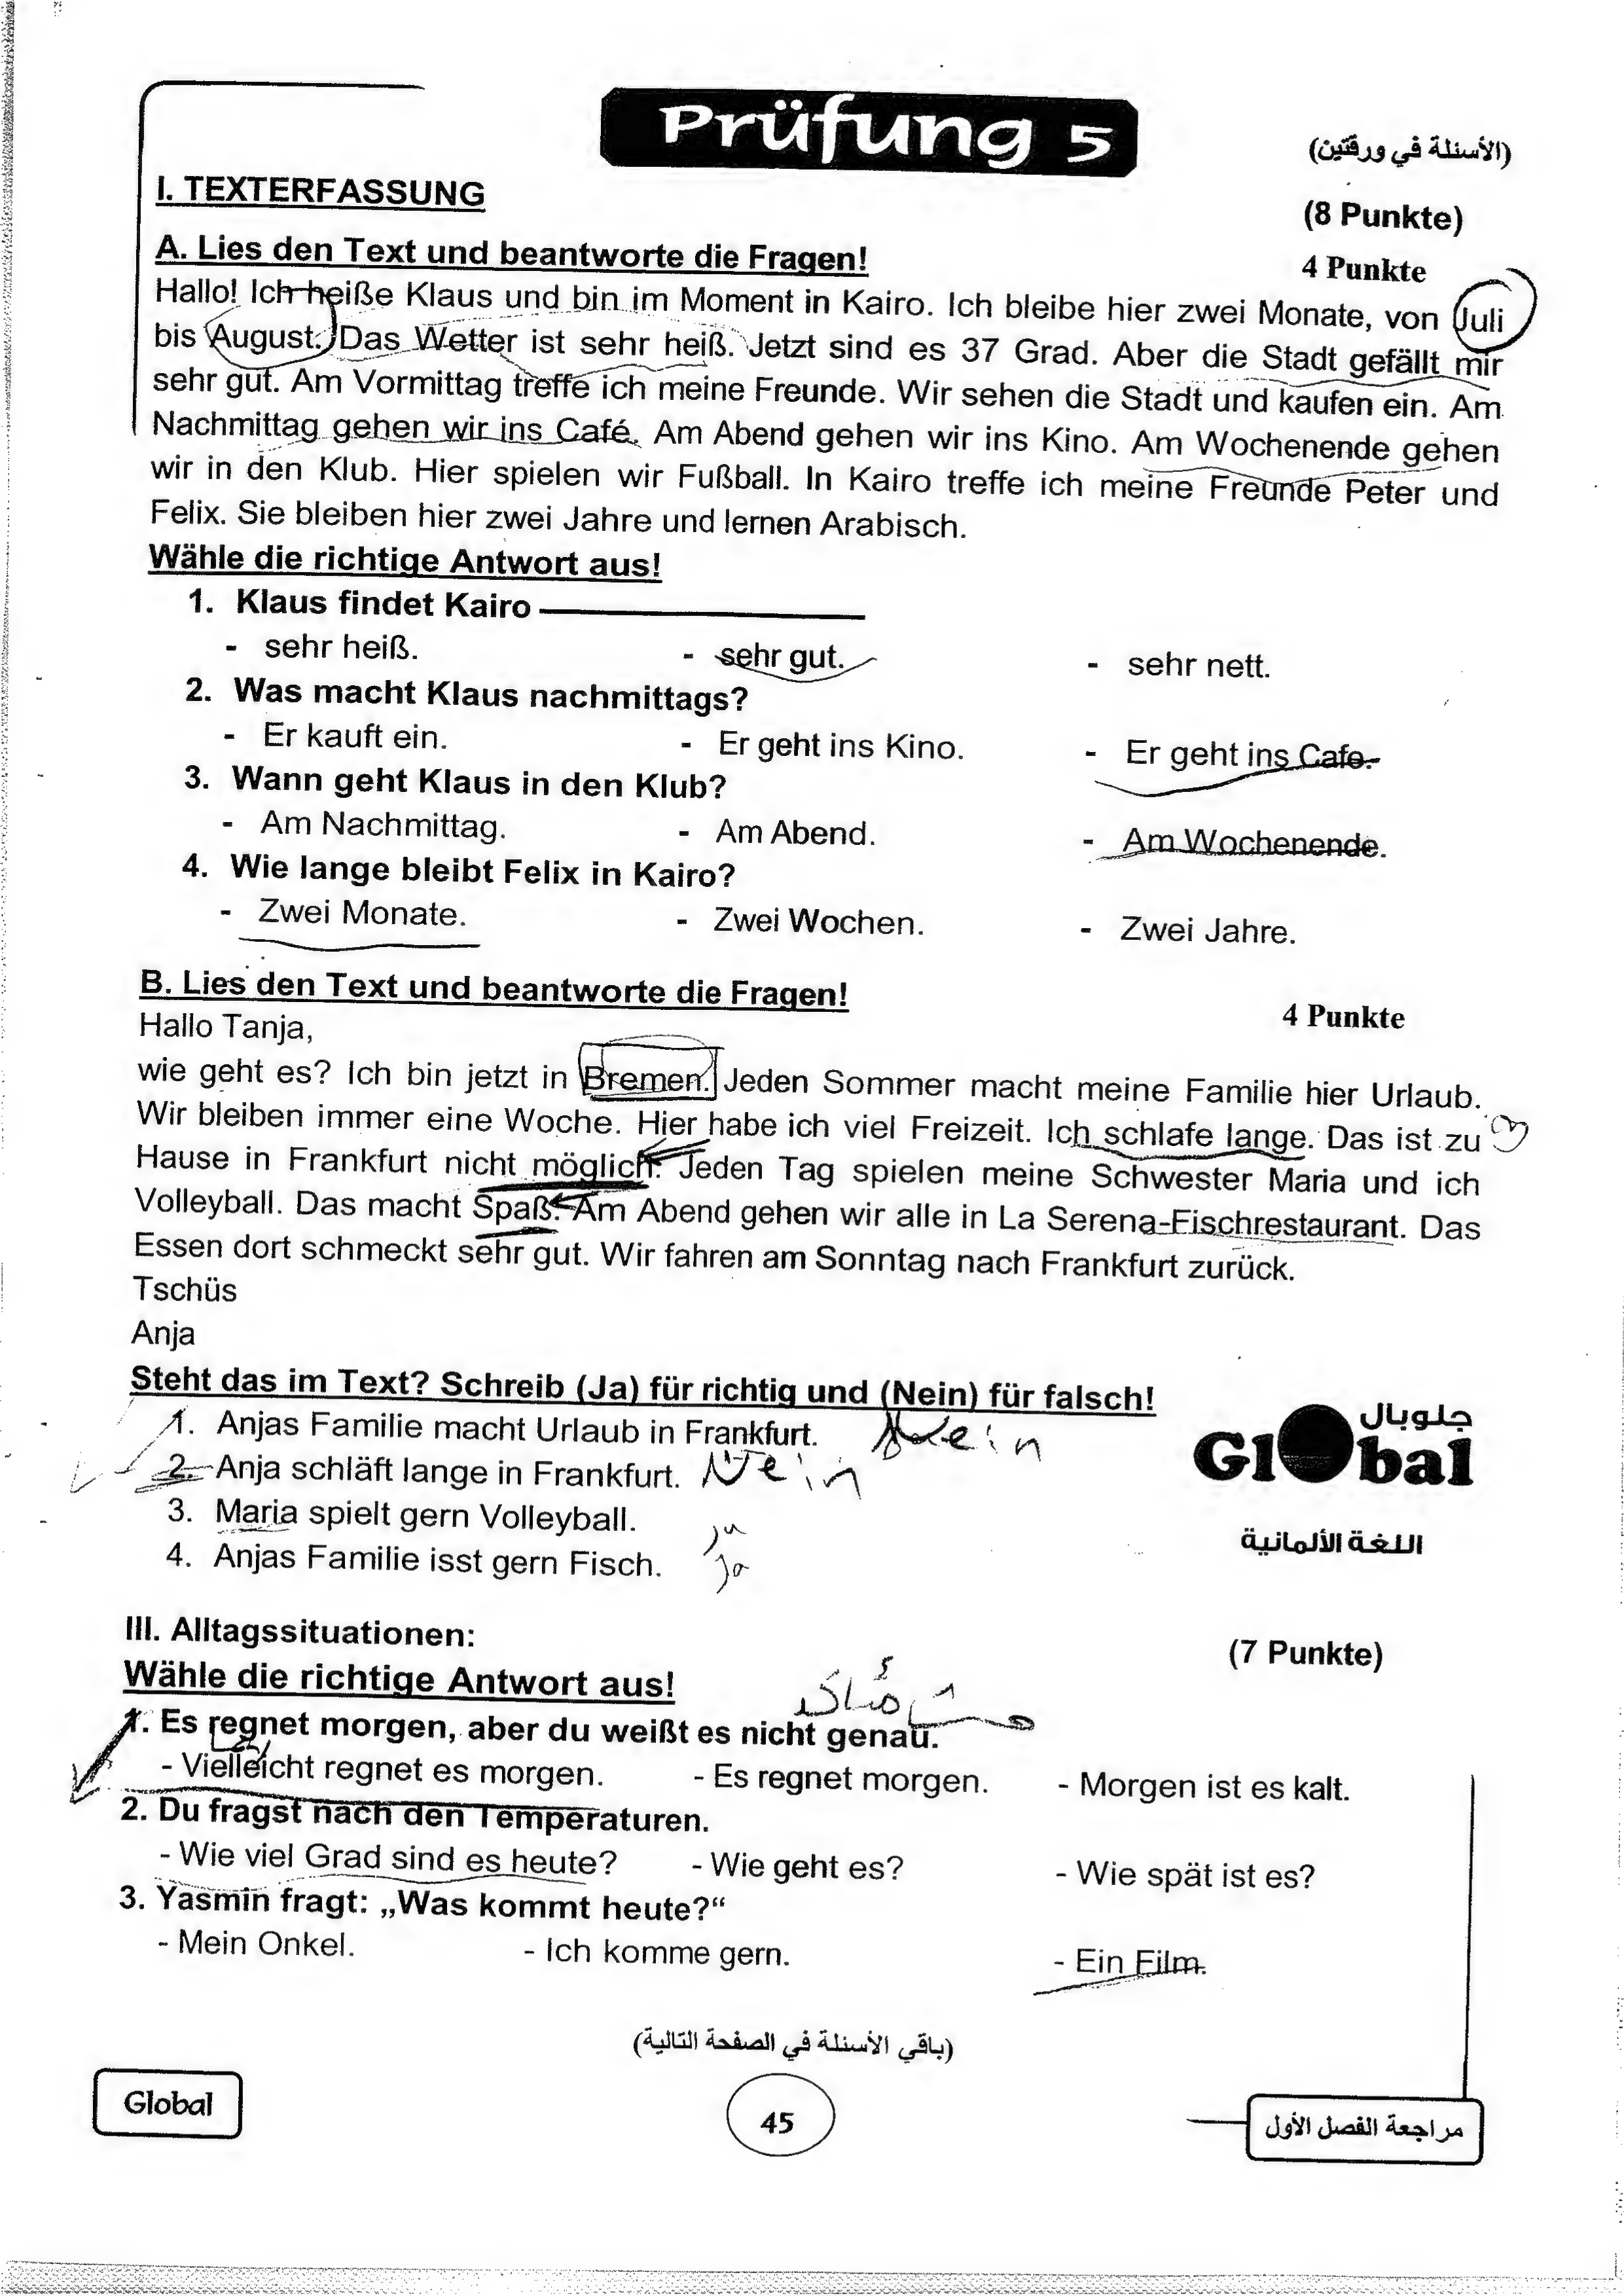 Prüfung 5
(الأسئلة في ورقتين)
I. TEXTERFASSUNG
(8 Punkte)
A. Lies den Text und beantworte die Fragen!
4 Punkte
Hallo! Ich heiße Klaus und bin im Moment in Kairo. Ich bleibe hier zwei Monate, von Juli
bis August. Das Wetter ist sehr heiß. Jetzt sind es 37 Grad. Aber die Stadt gefällt mir
sehr gut. Am Vormittag treffe ich meine Freunde. Wir sehen die Stadt und kaufen ein. Am
Nachmittag gehen wir ins Café. Am Abend gehen wir ins Kino. Am Wochenende gehen
wir in den Klub. Hier spielen wir Fußball. In Kairo treffe ich meine Freunde Peter und
Felix. Sie bleiben hier zwei Jahre und lernen Arabisch.
Wähle die richtige Antwort aus!
1. Klaus findet Kairo
- sehr heiß. - sehr gut. - sehr nett.
2. Was macht Klaus nachmittags?
- Er kauft ein. - Er geht ins Kino. - Er geht ins Cafe.
3. Wann geht Klaus in den Klub?
- Am Nachmittag. - Am Abend. - Am Wochenende.
4. Wie lange bleibt Felix in Kairo?
- Zwei Monate. - Zwei Wochen. - Zwei Jahre.
B. Lies den Text und beantworte die Fragen!
4 Punkte
Hallo Tanja,
wie geht es? Ich bin jetzt in Bremen. Jeden Sommer macht meine Familie hier Urlaub.
Wir bleiben immer eine Woche. Hier habe ich viel Freizeit. Ich schlafe lange. Das ist zu
Hause in Frankfurt nicht möglich. Jeden Tag spielen meine Schwester Maria und ich
Volleyball. Das macht Spaß. Am Abend gehen wir alle in La Serena-Fischrestaurant. Das
Essen dort schmeckt sehr gut. Wir fahren am Sonntag nach Frankfurt zurück.
Tschüs
Anja
Steht das im Text? Schreib (Ja) für richtig und (Nein) für falsch!
1. Anjas Familie macht Urlaub in Frankfurt. Nein
2. Anja schläft lange in Frankfurt. Nein
3. Maria spielt gern Volleyball. ja
4. Anjas Familie isst gern Fisch. ja
جلوبال
Global
اللغة الألمانية
III. Alltagssituationen:
(7 Punkte)
Wähle die richtige Antwort aus!
مش متأكد
1. Es regnet morgen, aber du weißt es nicht genau.
- Vielleicht regnet es morgen. - Es regnet morgen. - Morgen ist es kalt.
2. Du fragst nach den Temperaturen.
- Wie viel Grad sind es heute? - Wie geht es? - Wie spät ist es?
3. Yasmin fragt: „Was kommt heute?“
- Mein Onkel. - Ich komme gern. - Ein Film.
(باقي الأسئلة في الصفحة التالية)
Global
45
مراجعة الفصل الأول